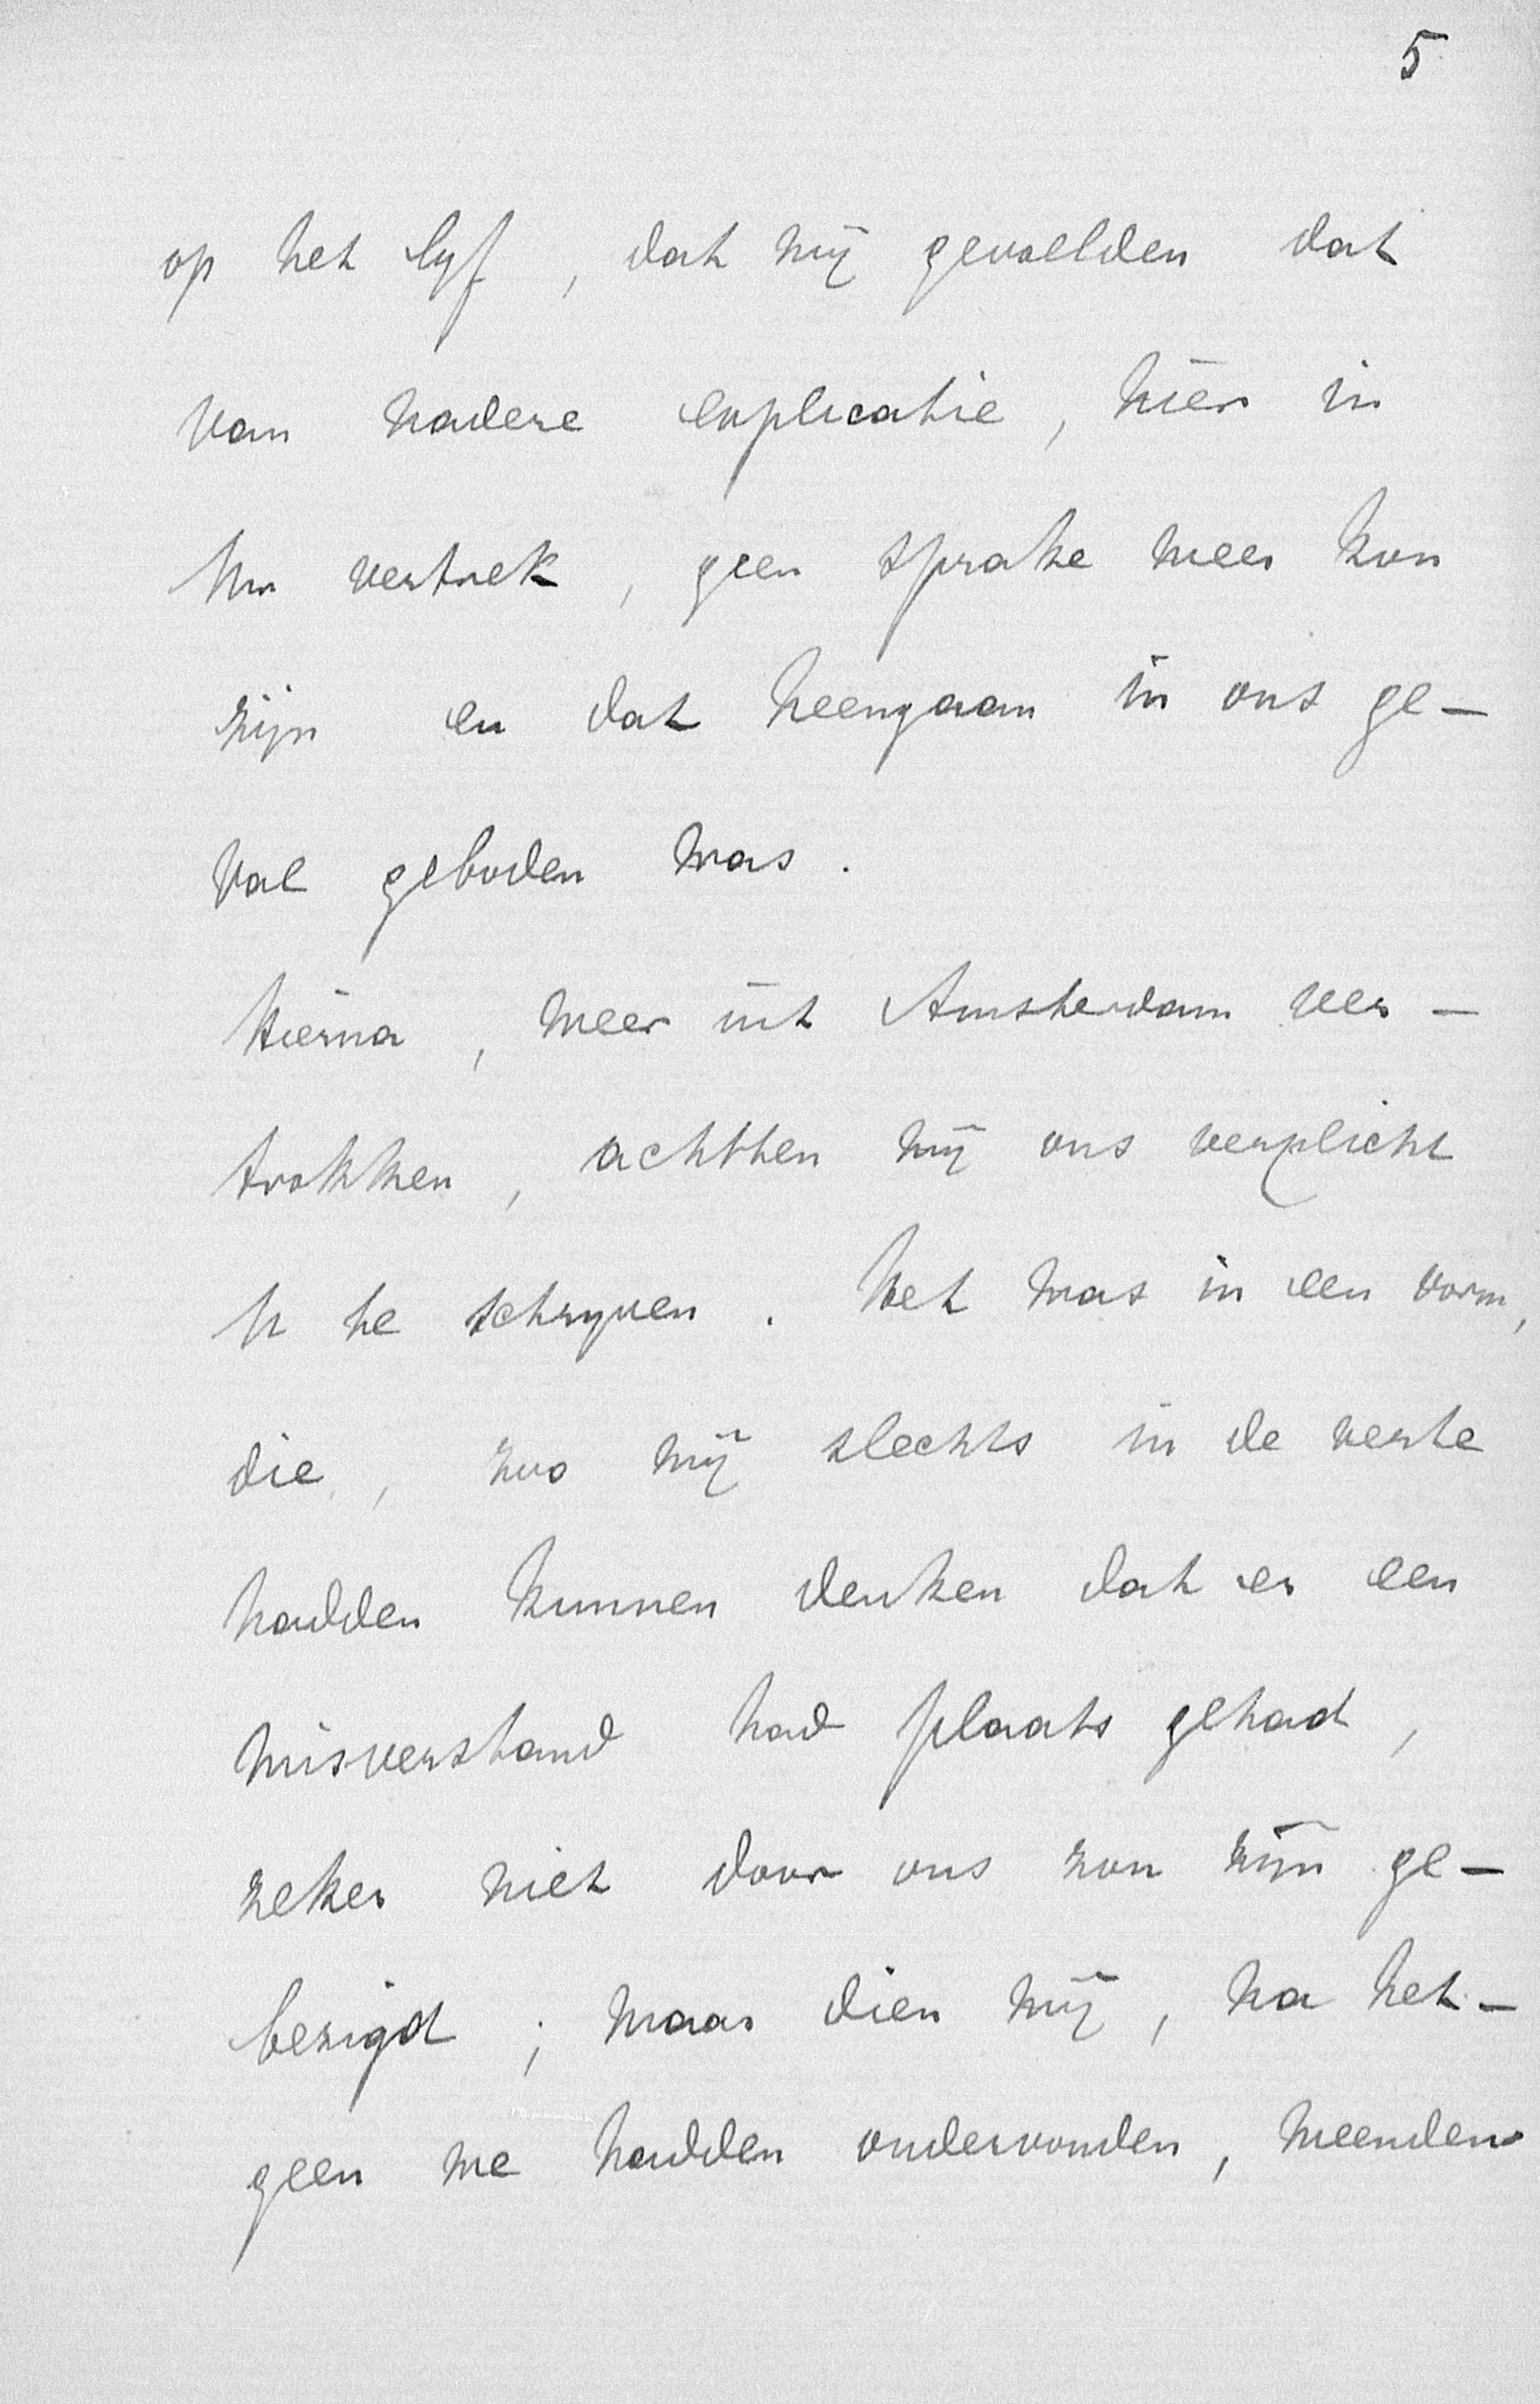 5
op het lyf, dat wij gevoelden dat
van nadere explicatie, hier in
Uw vertrek, geen sprake meer kon
zijn en dat heengaan in ons ge-
val geboden was.
Hierna, weer uit Amsterdam ver-
trokken, achtten wij ons verplicht
U te schryven. Het was in een vorm,
die, zoo wij slechts in de verte
hadden kunnen denken dat er een
misverstand had plaats gehad,
zeker niet door ons zou zijn ge-
bezigd; maar dien wij, na het-
geen we hadden ondervonden, meenden